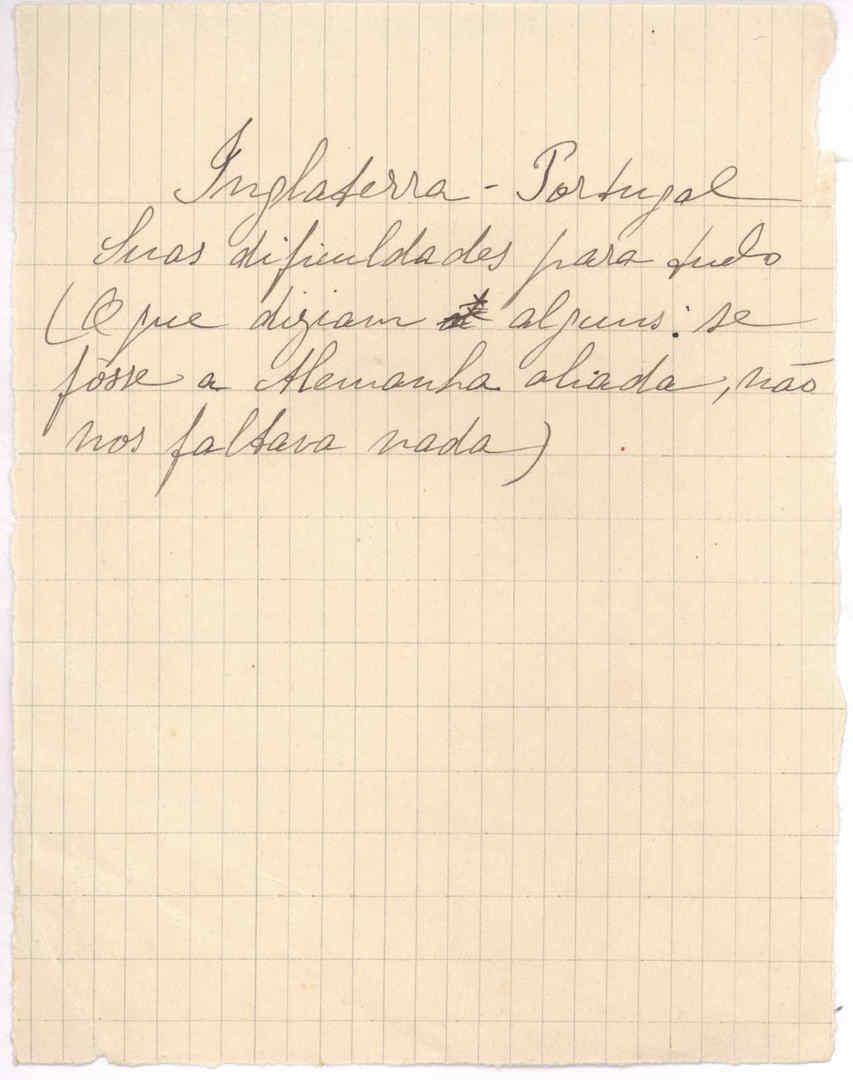 Inglaterra - Portugal
Suas dificuldades para tudo
(O que diziam alguns: se
fôsse a Alemanha aliada, não
nos faltava nada)